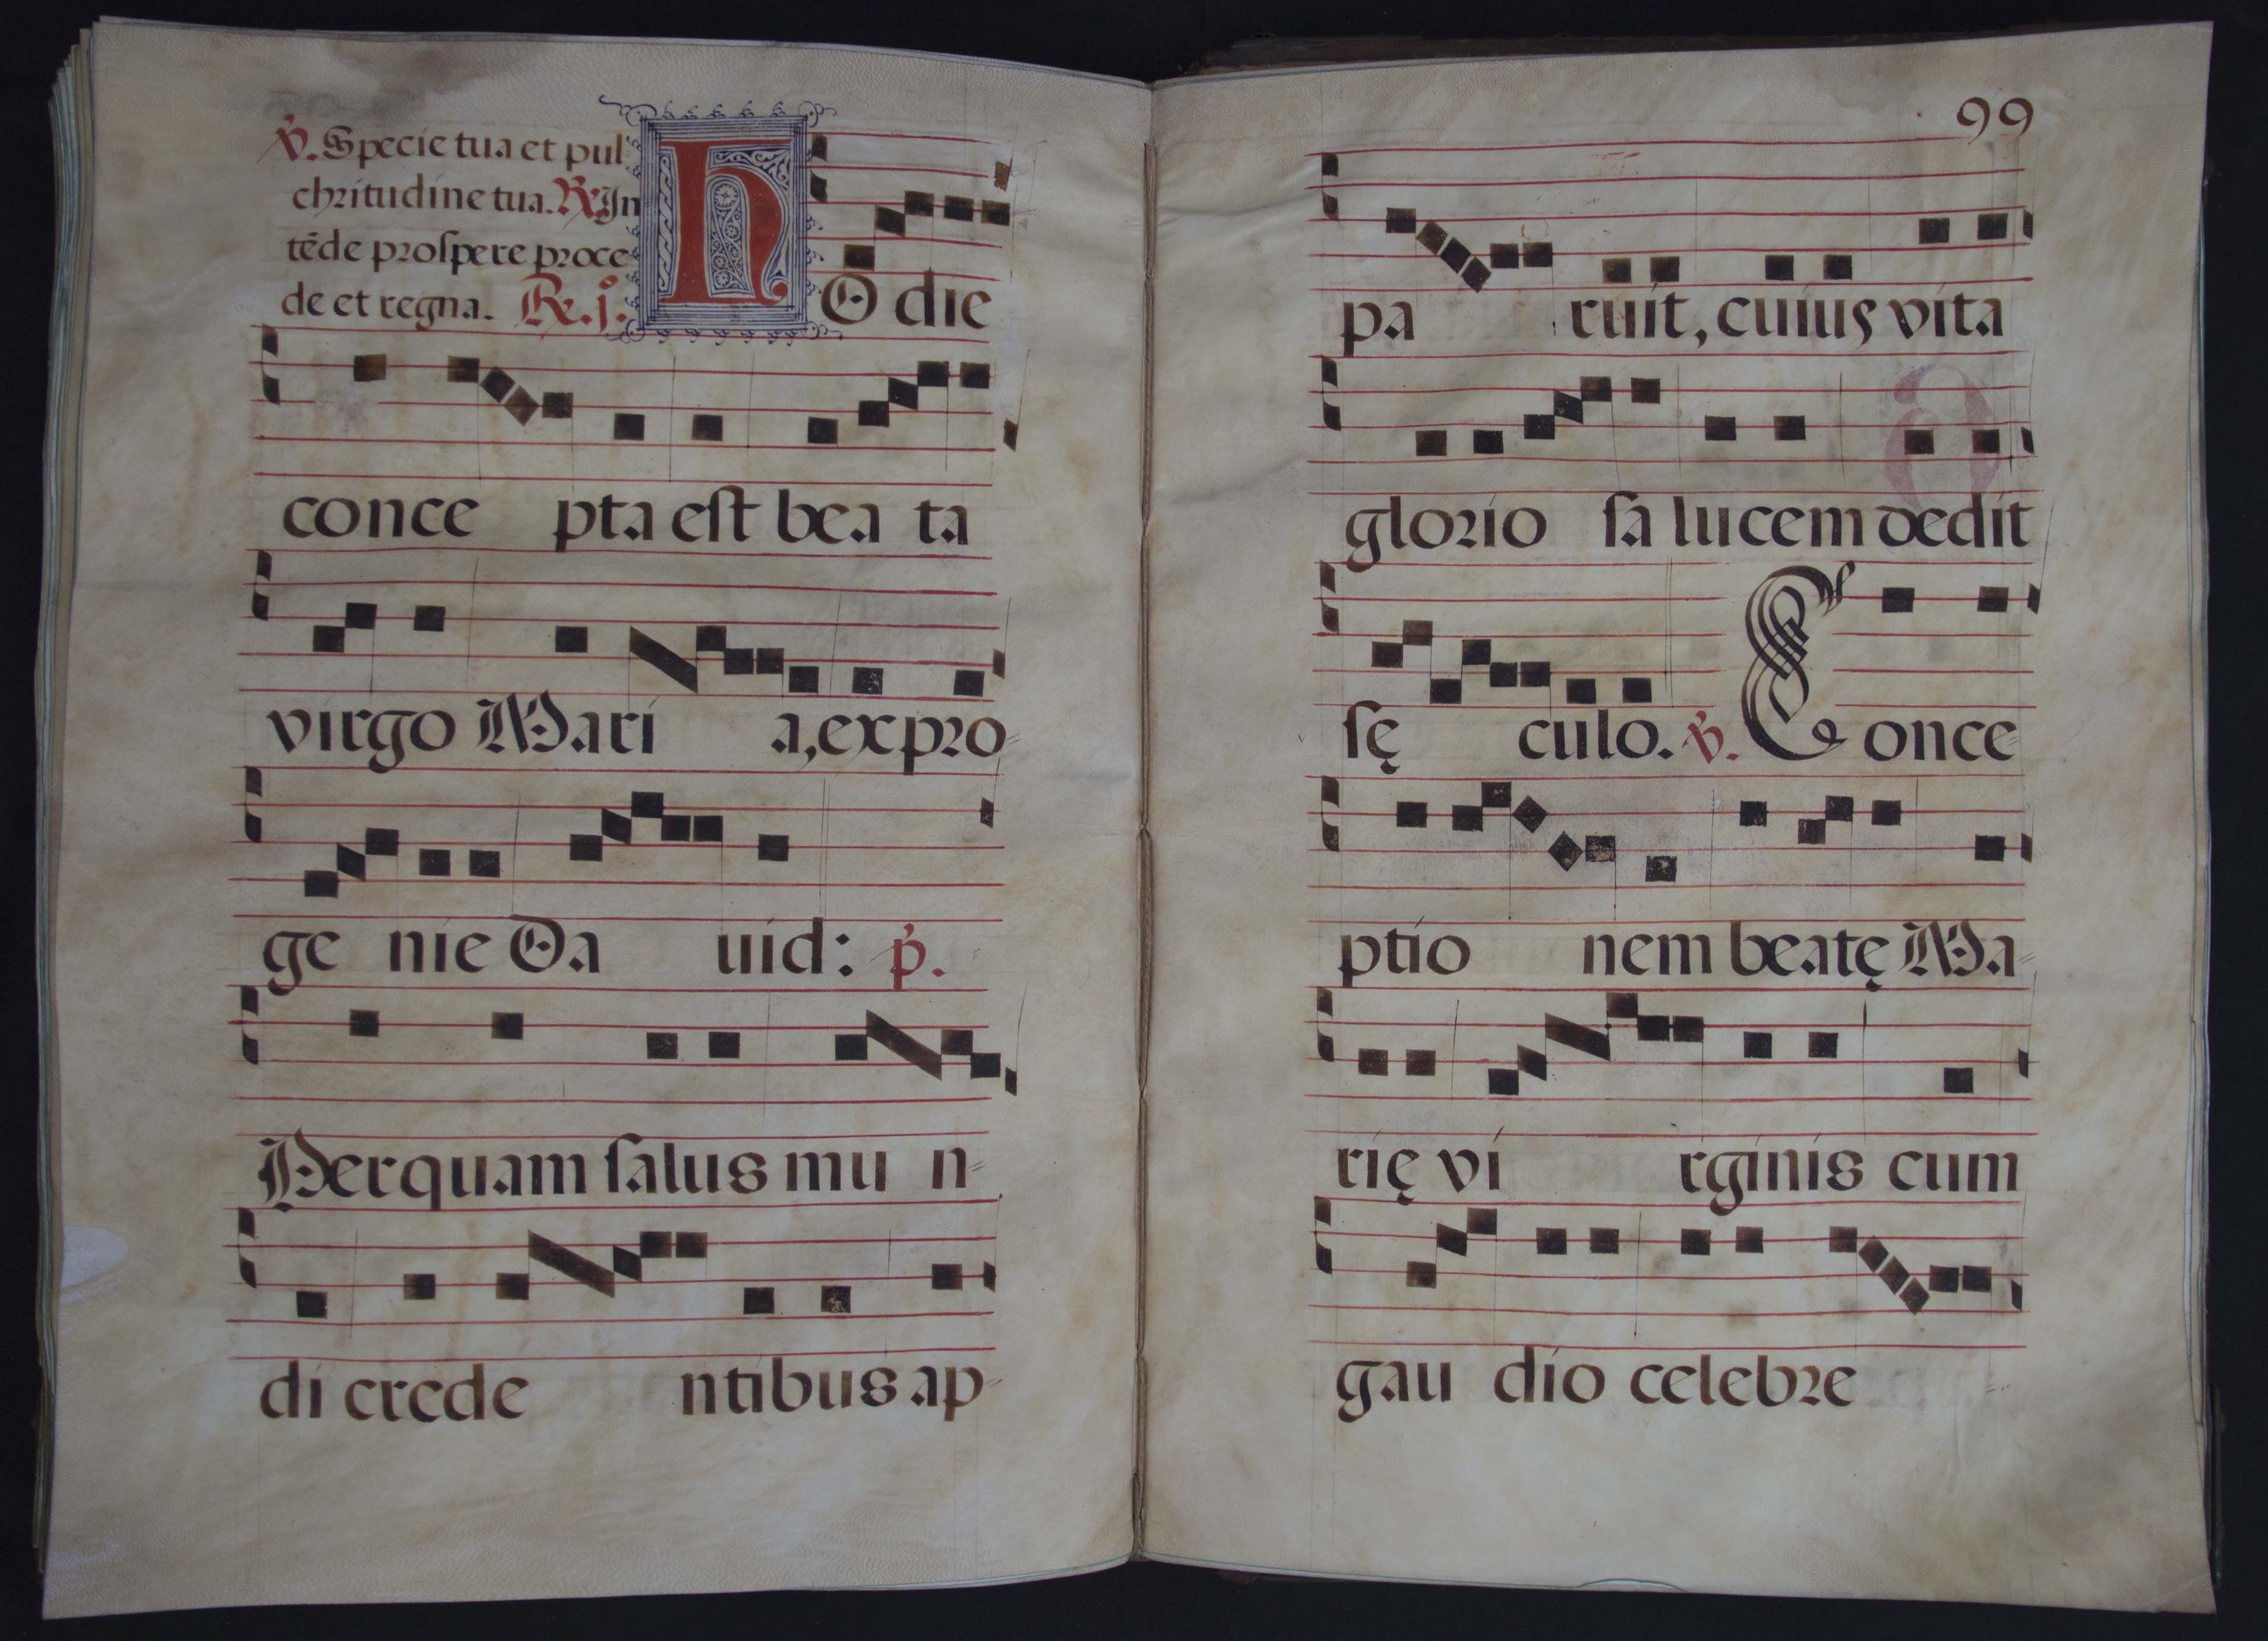 ℣. Specie tua et pul-
chritudine tua. ℟. In
tēde prospere proce
de et regna. ℟. j.
HOdie
conce pta est bea ta
virgo Mari a, ex pro-
ge nie Da uid: p̃.
Per quam salus mu n-
di crede ntibus ap-
99
pa ruit, cuius vita
glorio sa lucem dedit
sę culo. ℣. Conce-
ptio nem beatę Ma-
rię vi rginis cum
gau dio celebre -